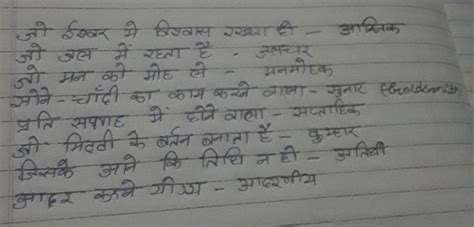 जो ईश्वर में विश्वास रखता हो - आस्तिक
जो जल में रहता है - जलचर
जो मन को मोह ले - मनमोहक
सोने - चाँदी का काम करने वाला - सुनार (Goldsmith)
प्रति सप्ताह में होने वाला - साप्ताहिक
जो मिट्टी के बर्तन बनाता है - कुम्हार
जिसके आने कि तिथि न हो - अतिथी
आदर करने योग्य - आदरणीय